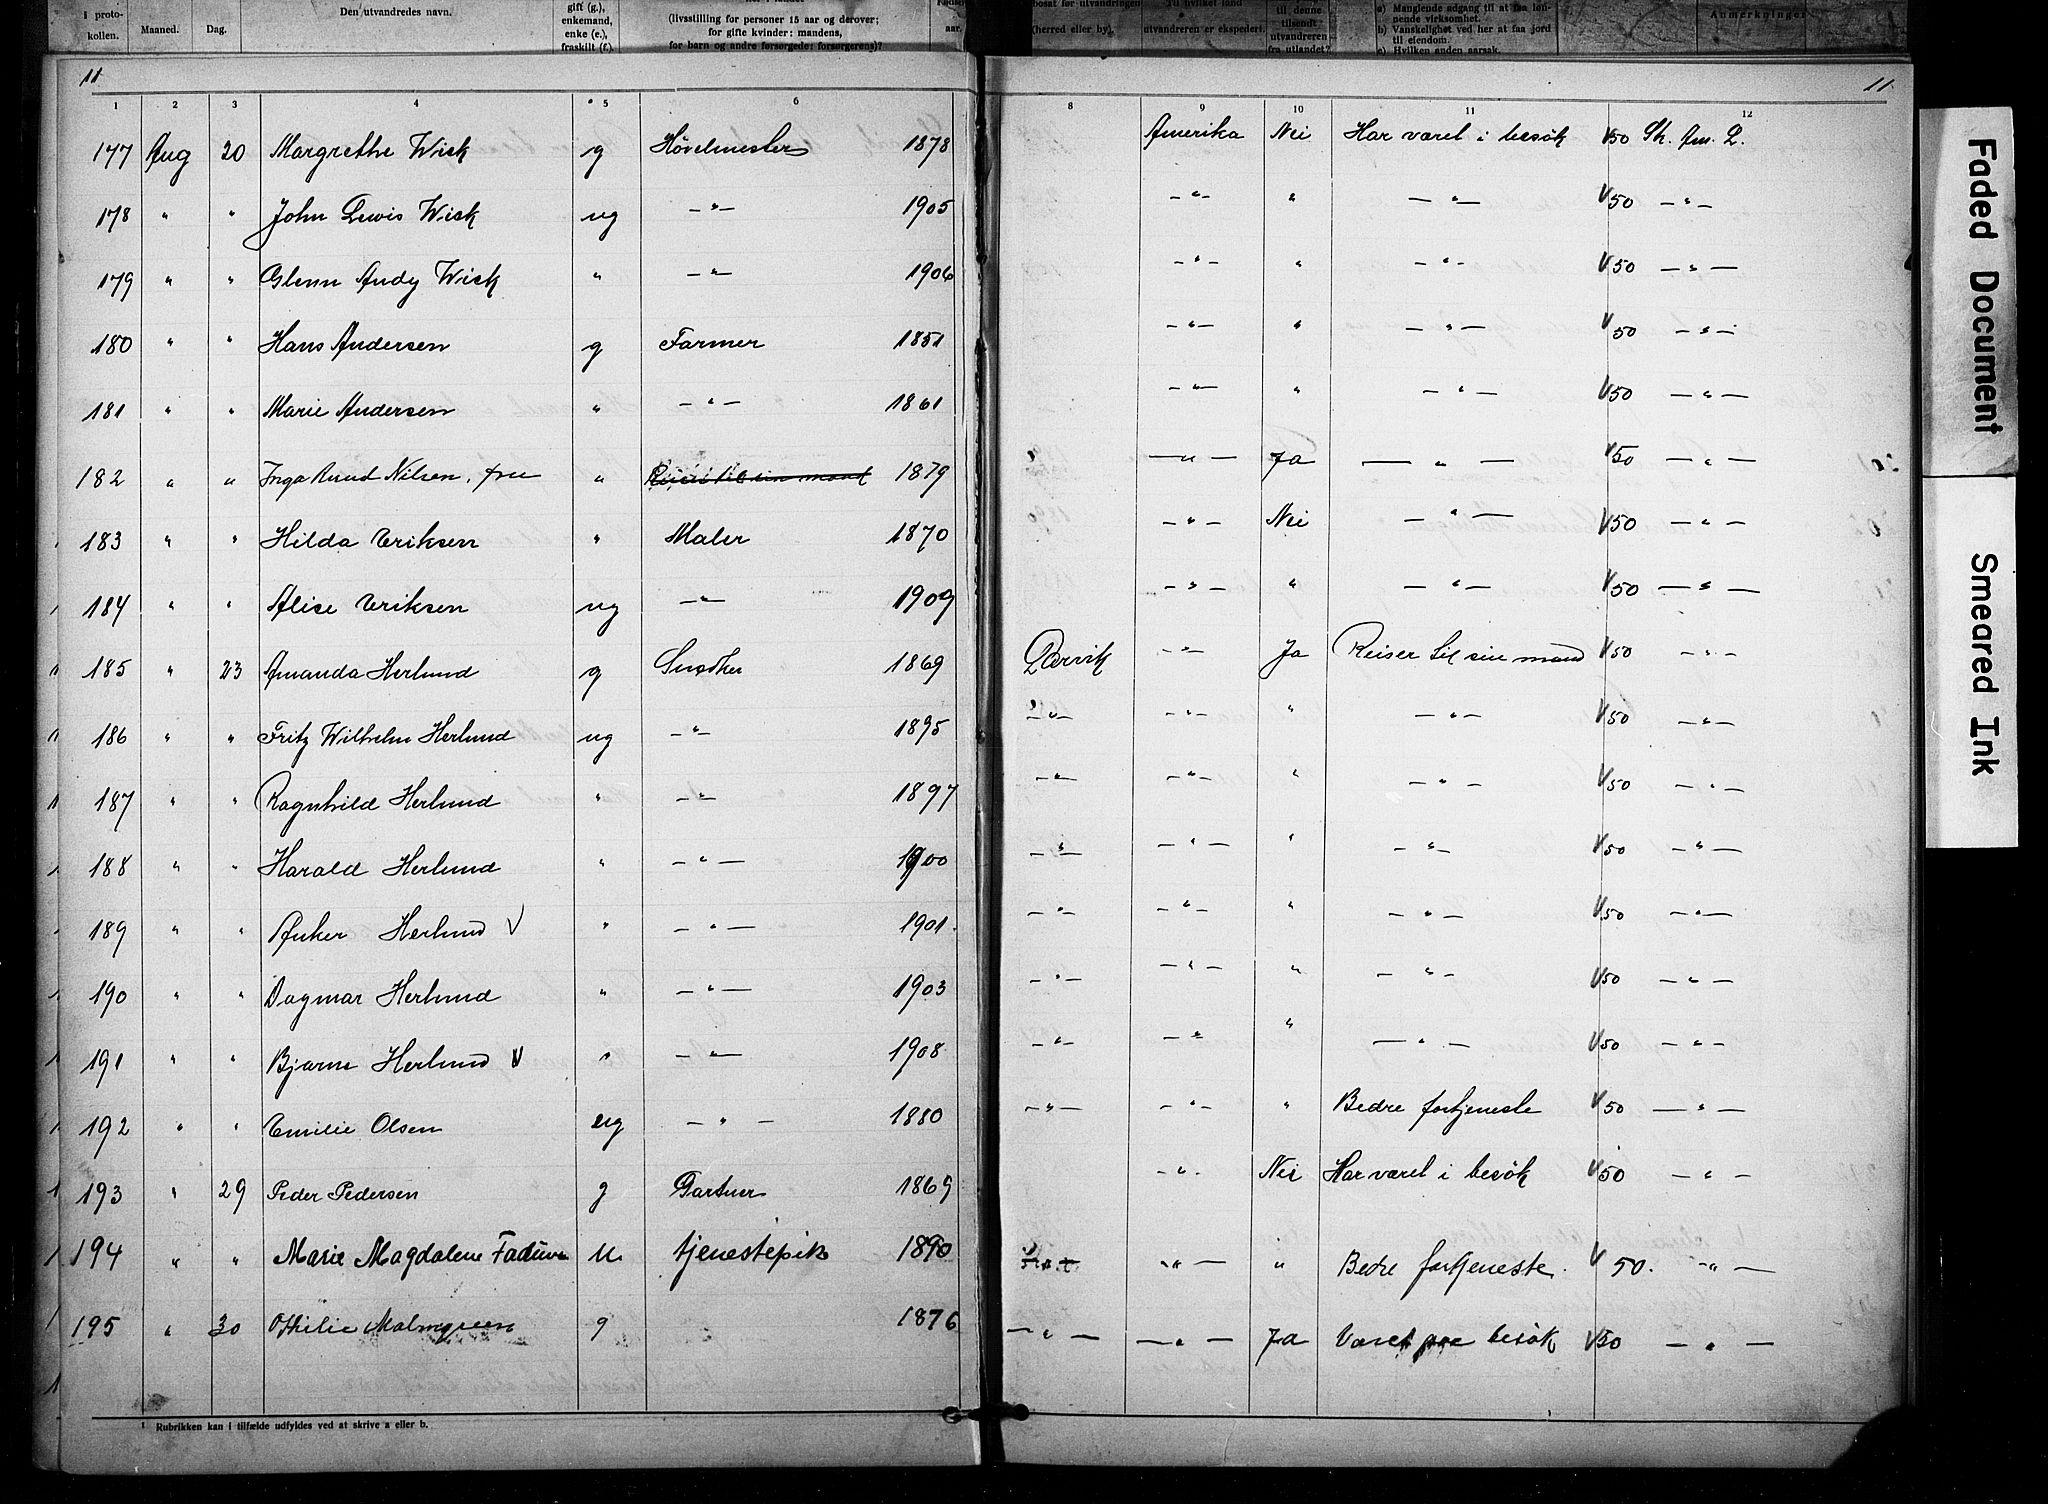 I proto-kollen. Maaned. Dag. Den utvandredes navn. gift (g.), enkemand, enke (e.), fraskilt (f.) (livsstilling for personer 15 aar og derover; for gifte kvinder: mandens, for barn og andre forsørgede: forsørgerens)? aar. bosat før utvandringen (herred eller by). Til hvilket land utvandreren er ekspedert. til denne tilsendt utvandreren fra utlandet? a) Manglende adgang til at faa løn-nende virksomhet. b) Vanskelighet ved her at faa jord til eiendom. c) Hvilken anden aarsak. Anmerkninger
11 11.
1 2 3 4 5 6 8 9 10 11 12
177 Aug 20 Margrethe Wick g Høvelmester 1878 Amerika Nei Har været i besök V50 Sk. Am. L.
178 " " John Lewis Wick ug —"— 1905 —"— " —"— V50 —"—
179 " " Glenn Andy Wick " —"— 1906 —"— " —"— V50 —"—
180 " " Hans Andersen g Farmer 1851 —"— " —"— V50 —"—
181 " " Marie Andersen " —"— 1861 —"— " —"— V50 —"—
182 " " Inga Ruud Nilsen, fru " Reiser til sin mand 1879 —"— Ja —"— V50 —"—
183 " " Hilda Eriksen " Maler 1870 —"— Nei —"— V50 —"—
184 " " Alise Eriksen ug —"— 1909 —"— " —"— V50 —"—
185 " 23 Amanda Herlund g Snedker 1869 —"— Ja Reiser til sin mand V50 —"—
186 " " Fritz Wilhelm Herlund ug —"— 1895 —"— —"— " —"— V50 —"—
187 " " Ragnhild Herlund " —"— 1897 —"— —"— " —"— V50 —"—
188 " " Harald Herlund " —"— 1900 —"— —"— " —"— V50 —"—
189 " " Anker Herlund V " —"— 1901. —"— —"— " —"— V50 —"—
190 " " Dagmar Herlund " —"— 1903 —"— —"— " —"— V50 —"—
191 " " Bjarne Herlund V " —"— 1908 —"— —"— " —"— V50 —"—
192 " " Emilie Olsen ug —"— 1880 —"— —"— " Bedre fortjeneste V50 —"—
193 " 29 Peder Pedersen g Gartner 1869 —"— Nei Har været i besök V50 —"—
194 " " Marie Magdalene u. tjenestepik 1890 —"— " Bedre fortjeneste. V 50. —"—
195 " 30 Othilie Malmgreen g 1876 —"— —"— Ja Været paa besök V50 —"—
¹ Rubrikken kan i tilfælde udfyldes ved at skrive a eller b.
Faded Document
Smeared Ink